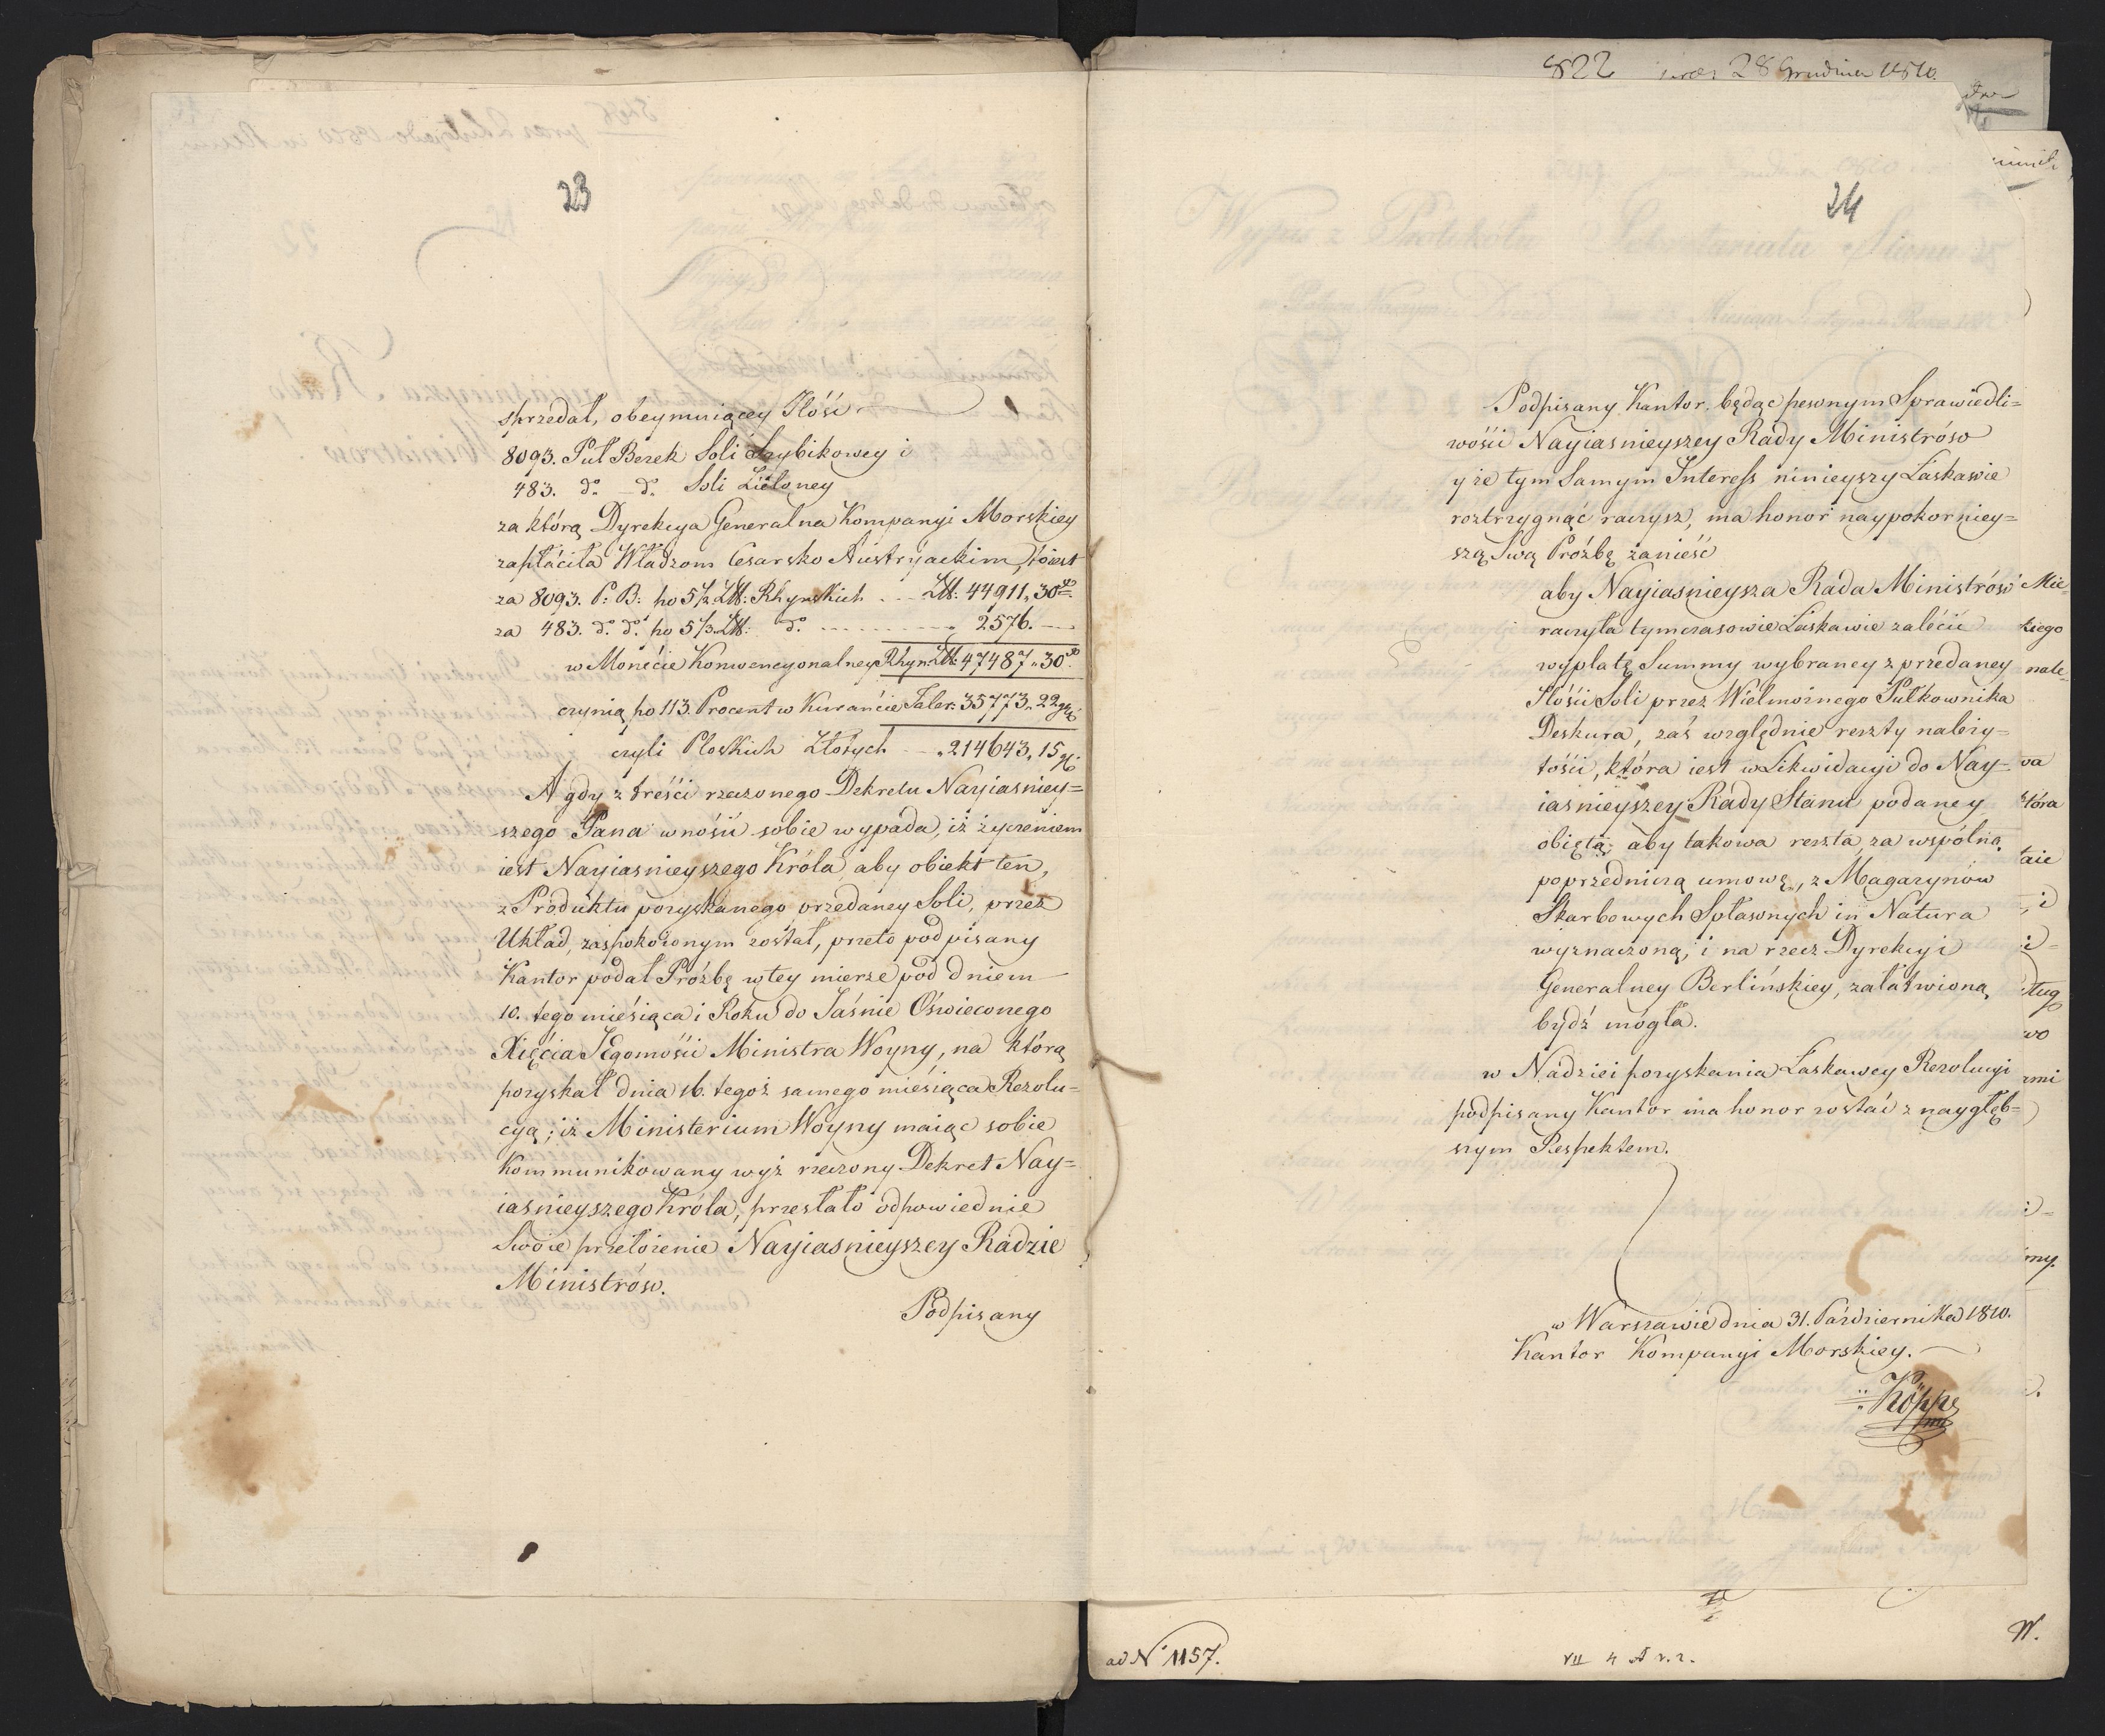 23
sprzedał, obeymuiącey Ilośċ
8093. Puł Beczek Soli Szybikowey i
483. do do Soli Zieloney
za którą Dyrekcya Generalna Kompanyi Morskiey
zapłáciła Władzom Cesarsko Austryackim, to iest
za 8093. P: B: po 5 1/2 Złł: Rhynskich ... Złł: 44911„30xo
za 483. do do po 5 1/3 Złł: do ... „ 2576.—
w Monécie Konwencyonalney Rhyn: Złł: 47487„30xo
czynią po 113. Procent w Kuránċie Taler: 35773„22
czyli Polskich Złotych „214643„15
A gdy z treśċi rzeczonego Dekretu Nayiasniey=
szego Pana wnośiċ sobie wypada, iż życzeniem
iest Nayiasnieyszego Króla, aby obiekt ten,
z Produktu pozyskanego przedaney Soli, przez
Układ, záspokoionym został, przeto podpisany
Kantor podał Proźbę w tey mierze pod dniem
10. tego mieśiąca i Roku do Jaśnie Oświeconego
Xięċia JEgomośċi Ministra Woyny, na którą
pozyskał dnia 16. tegoż samego mieśiąca Rezolu=
cyą; iż Ministerium Woyny maiąc sobie
kommunikowany wyż rzeczony Dekret Nay=
iasnieyszego Króla, przesłało odpowiednie
Swoie przełożenie Nayiasnieyszey Radzie
Ministrów.
Podpisany
822 28 Grudnia 1810.
24
Podpisany Kantor, będąc pewnym Sprawiedli=
wośċi Nayiasnieyszey Rady Ministrów
y że tym Samym Interess ninieyszy Łáskawie
roztrzygnąċ raczysz, ma honor naypokorniey=
szą Swą Proźbę zanieśċ
aby Nayiasnieysza Rada Ministrów
raczyła tymczasowie Łáskawie zaléciċ
wypłatę Summy wybraney z przedaney
Ilośċi Soli przez Wielmożnego Pułkownika
Deskura, zaś względnie reszty należy=
tośċi, która iest w Likwidacyi do Nay=
iasnieyszey Rady Stanu podaney
obiętą; aby takowa reszta, za wspólną
poprzedniczą umową, z Magazynów
Skarbowych Solasonych in Natura
wyznaczoną, i na rzecz Dyrekcyi
Generalney Berlińskiey, załatwioną
bydź mogła.
w Nádziei pozyskania Łaskawey Rezolucyi
podpisany Kantor ma honor zostaċ z naygłęb=
szym Respektem.
w Warszawie dnia 31. Października 1810.
Kantor Kompanyi Morskiey.
Köppe
ad No 1157.
VII 4
W.